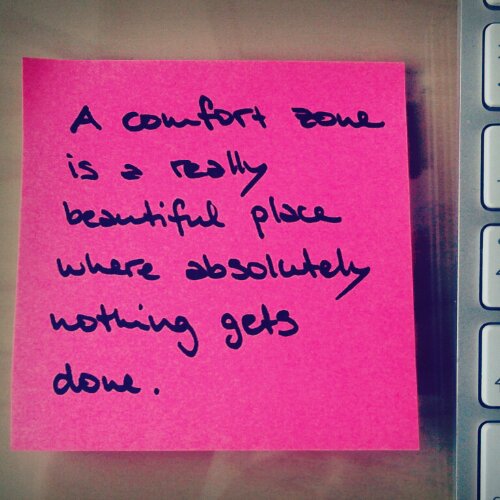 A comfort zone
is a really
beautiful place
where absolutely
nothing gets
done.